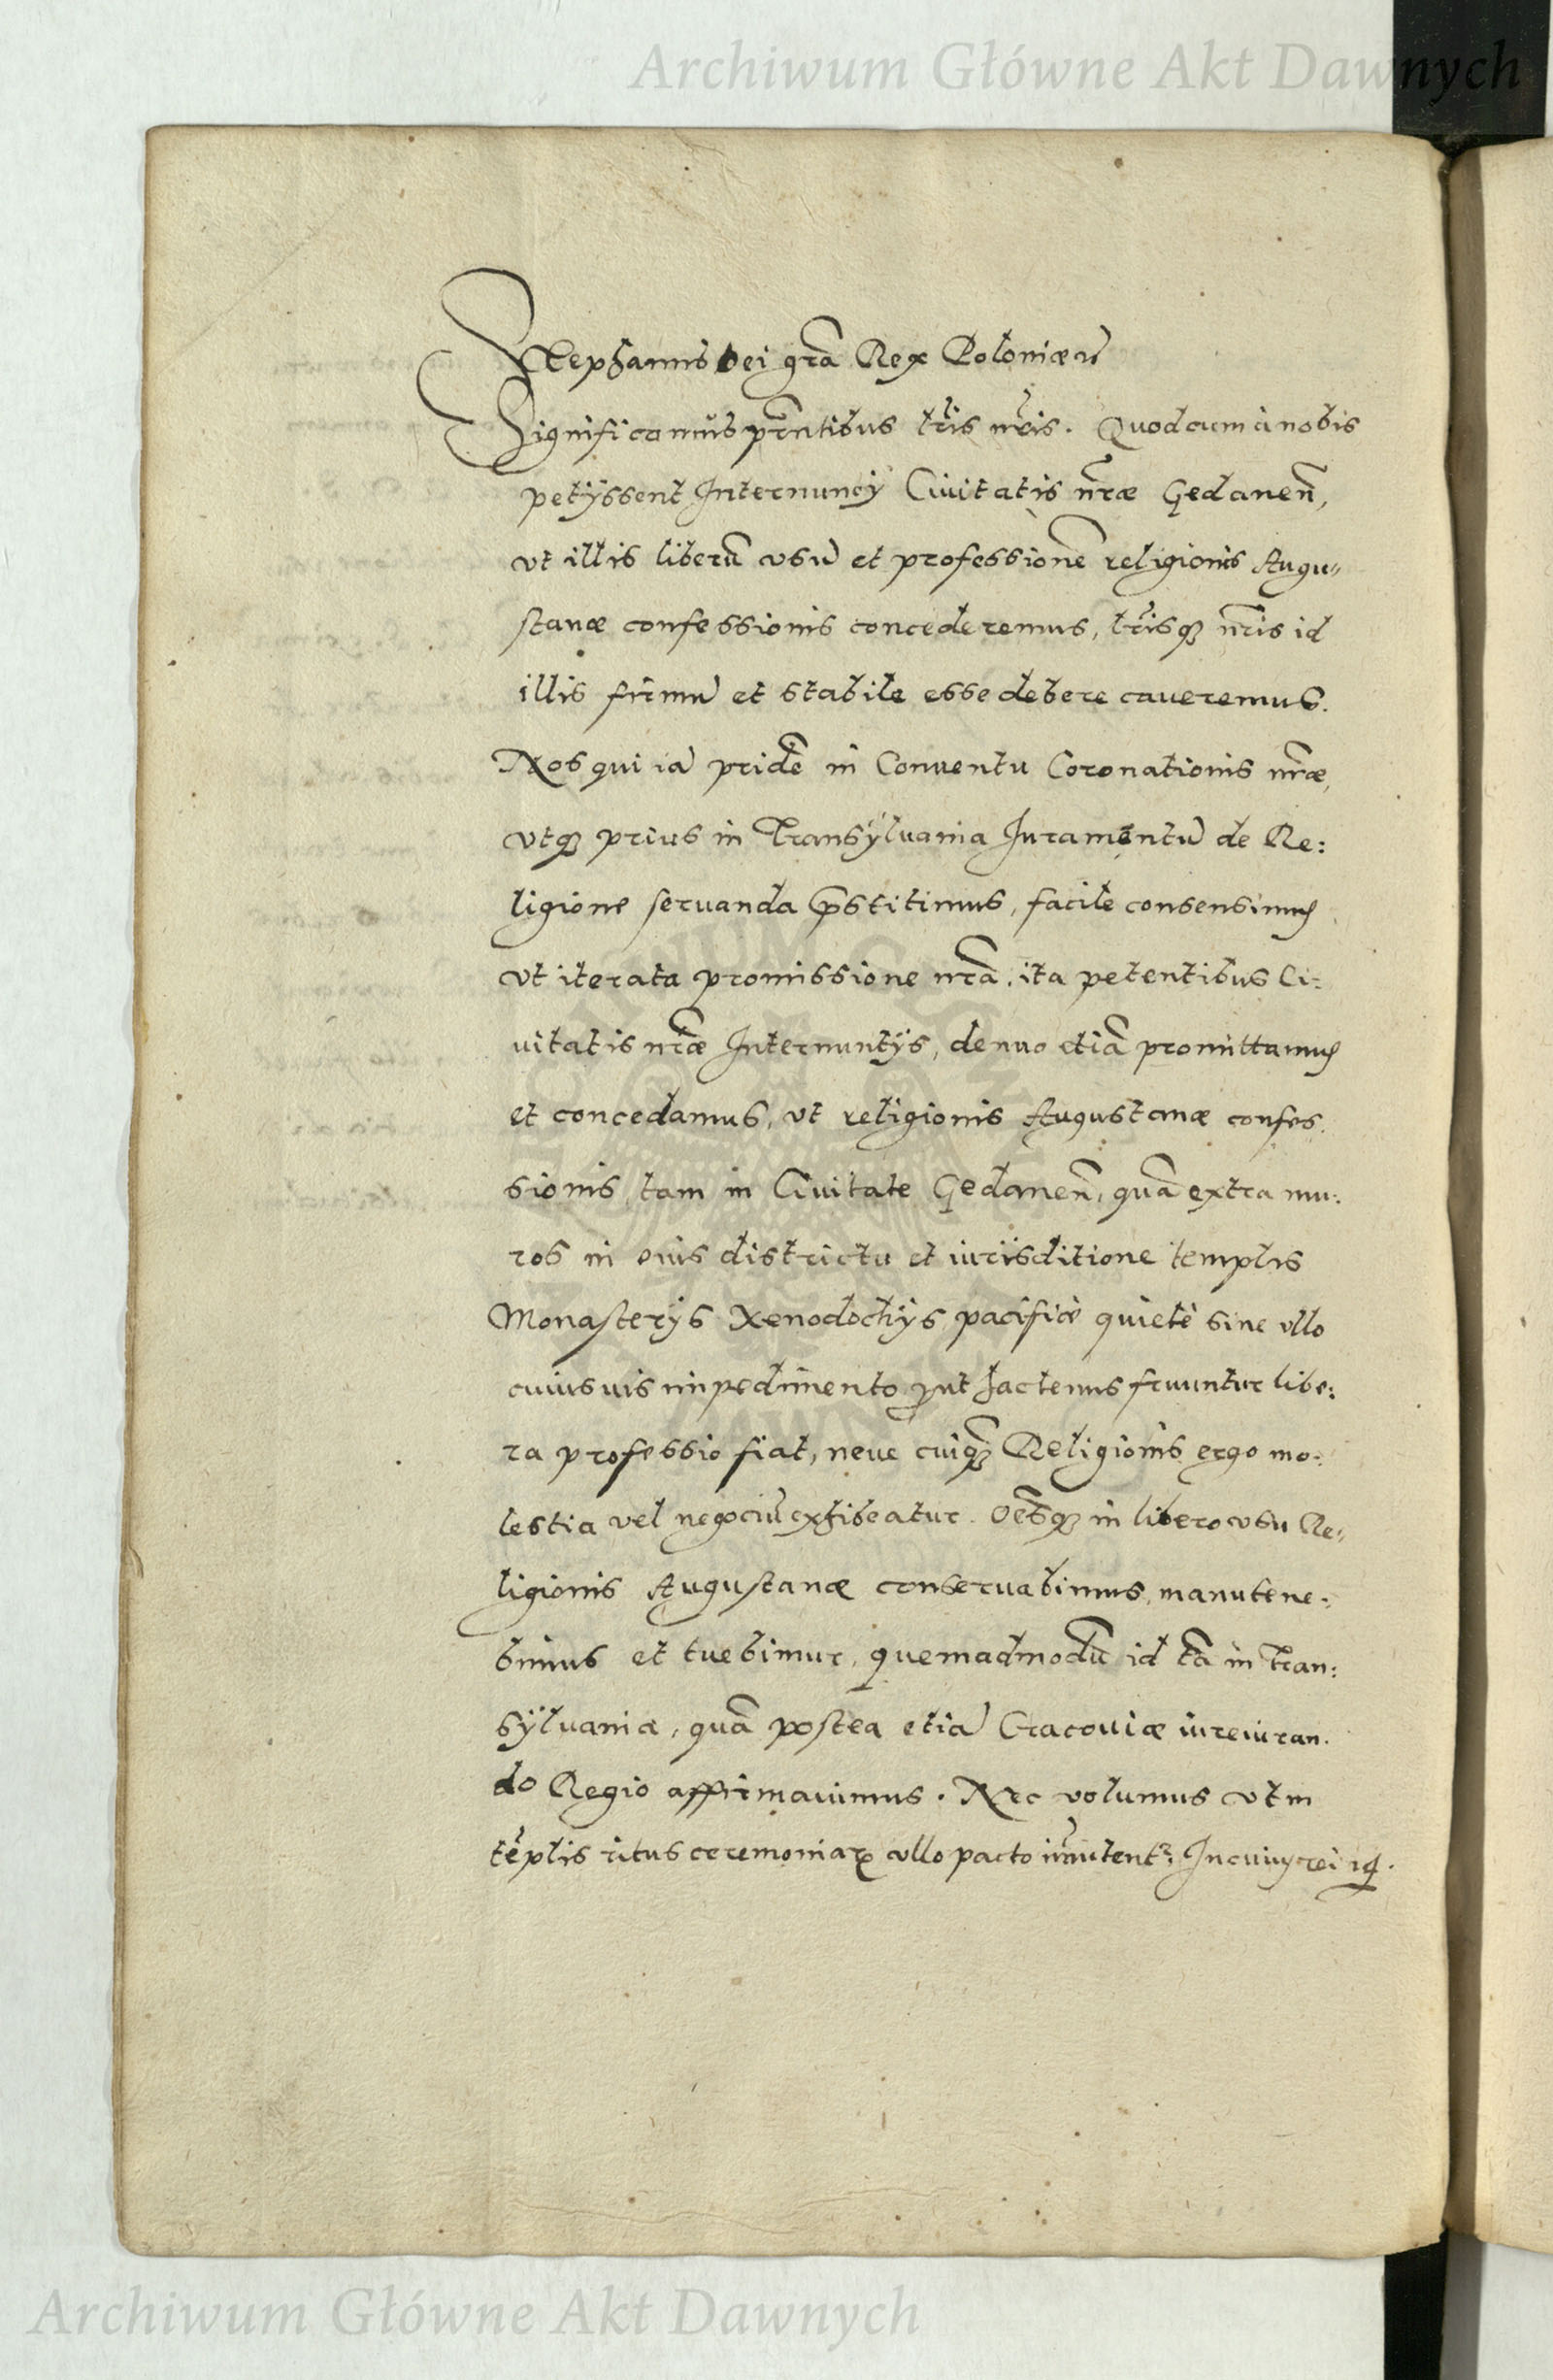 Archiwum Główne Akt Dawnych
Stephanus Dei grã Rex Poloniæ
Significamus prñtibus lr̃is nr̃is. Quod cum à nobis
petÿssent Internuncÿ Ciuitatis nr̃æ Gedanen̄,
vt illis liberũ vsũ et professionẽ religionis Augu„
stanæ confessionis concederemus, lr̃isqꝫ nr̃is id
illis firmũ et stabile esse debere caueremus.
Nos qui iã pridẽ in Conuentu Coronationis nr̃æ,
vtqꝫ prius in Transÿluania Juramentũ de Re:
ligione seruanda p̃stitimus, facile consensimus
vt iterata promissione nr̃a, ita petentibus Ci:
uitatis nr̃æ Internuntÿs, denuo etiã promittamus
et concedamus, vt religionis Augustanæ confes.
sionis, tam in Ciuitate Gedanen̄, quã extra mu:
ros in eius districtu et iurisditione templis
Monasterÿs Xenodochÿs pacificè quietè sine vllo
cuiusuis impedimento ꝓut hactenus fruuntur libe:
ra professio fiat, neue cuiqꝫ̃ Religionis ergo mo:
lestia vel negociũ exhibeatur. Oẽsqꝫ in libero vsu Re„
ligionis Augustanæ conseruabimus, manutene:
bimus et tuebimur, quemadmodũ id tã in Tran:
sÿluania, quã postea etiã Cracouiæ iureiuran.
do Regio affirmauimus. Nec volumus vt in
tẽplis ritus ceremoniaꝝ vllo pacto im̃utentr̃; In cuius rei
Archiwum Główne Akt Dawnych